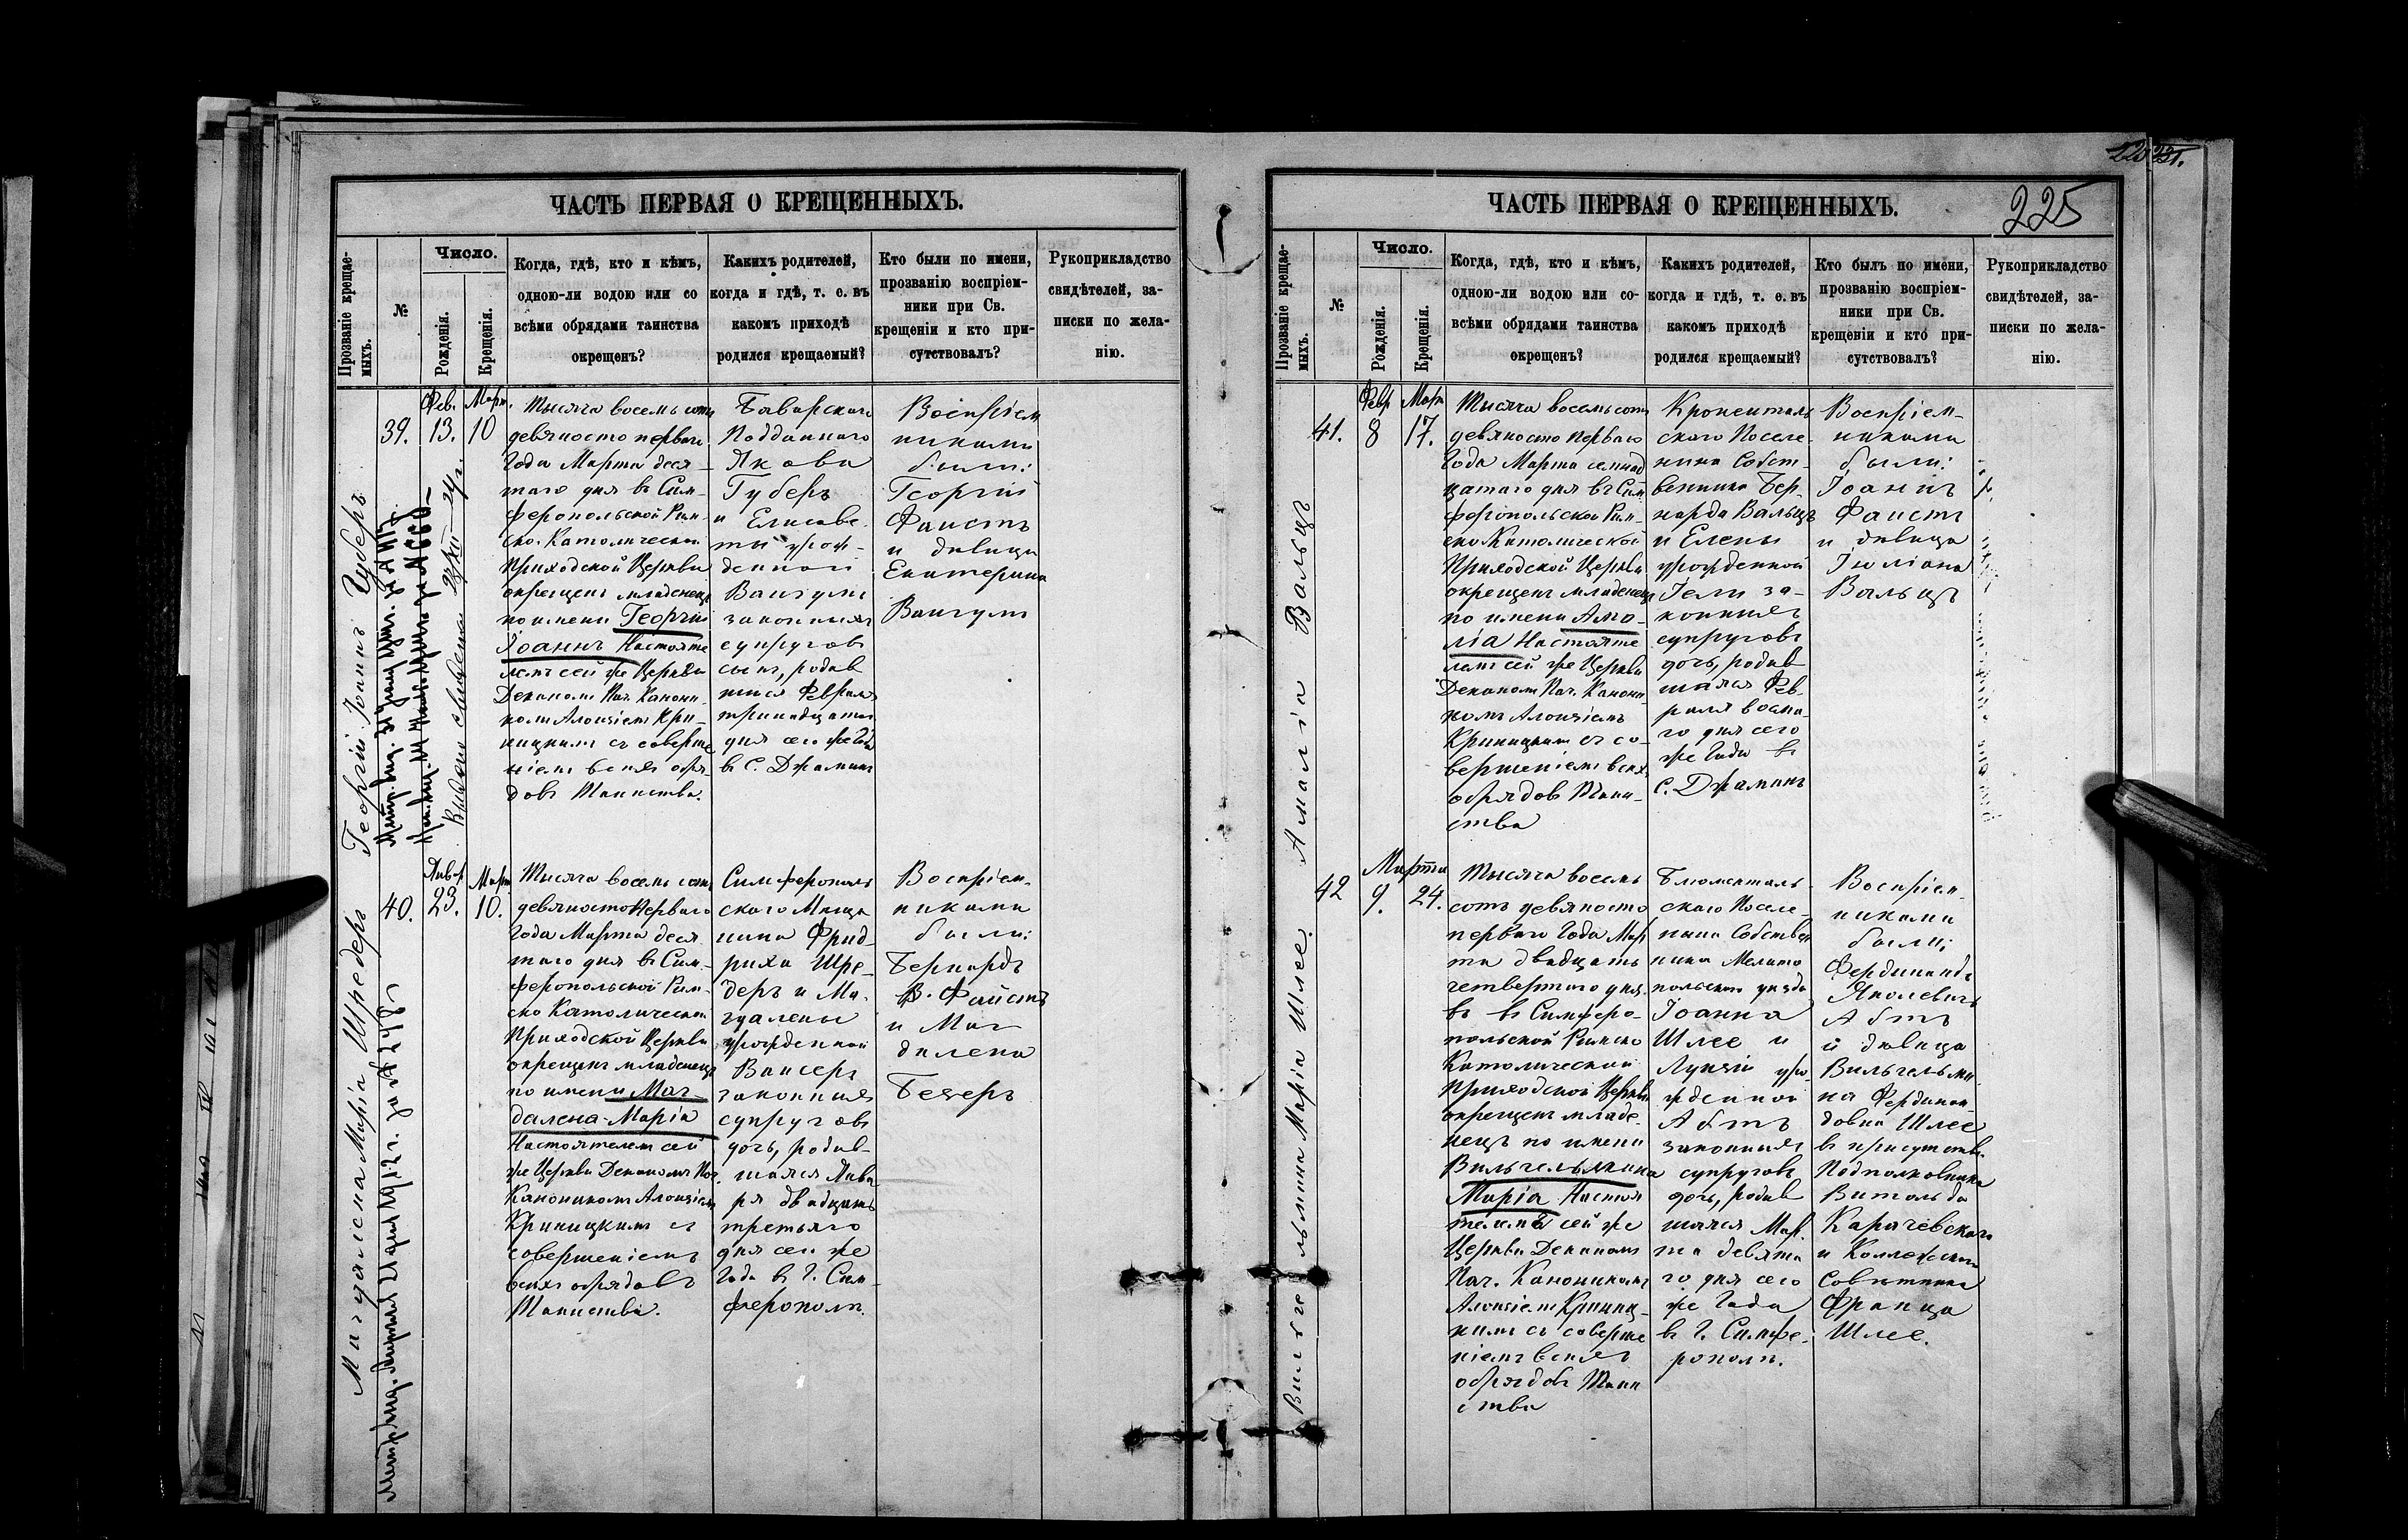 ЧАСТЬ ПЕРВАЯ О КРЕЩЕННЫХЪ.
Прозваніе крещае-
мыхъ.
№
Число.
Рожденія.
Крещенія.
Когда, гдѣ, кто и кѣмъ,
одною-ли водою или со
всѣми обрядами таинства
окрещенъ?
Какихъ родителей,
когда и гдѣ, т. е. въ
какомъ приходѣ
родился крещаемый?
Кто были по имени,
прозванію воспріем-
ники при Св.
крещеніи и кто при-
сутствовалъ?
Рукоприкладство
свидѣтелей, за-
писки по жела-
нію.
Георгій Іоаннъ Губеръ
39.
Фев.
13.
Март.
10
Тысяча восемь сотъ
девяносто перваго
Года Марта деся-
таго дня въ Сим-
феропольской Рим-
ско-Католической
Приходской Церкви
окрещенъ младенецъ
по имени Георгій
Іоаннъ Настояте
лемъ сей же Церкви
Деканомъ Поч. Канони-
комъ Алоизіемъ Кри-
ницкимъ съ соверше
ніемъ всѣхъ обря-
довъ Таинства.
Баварскаго
Подданнаго
Якова
Губеръ
и Елисаве-
ты урож-
денной
Вангумъ
законныхъ
супруговъ
сынъ, родив
шійся Февраля
тринадцатаго
дня сего же Года
въ С. Джаминъ
Воспріем
никами
были:
Георгій
Фаистъ
и дѣвица
Екатерина
Вангумъ
Магдалена Марія Шредеръ
40.
Январ
23.
Март
10.
Тысяча восемь сотъ
девяносто Перваго
Года Марта деся
таго дня въ Сим-
феропольской Рим-
ско Католической
Приходской Церкви
окрещенъ младенецъ
по имени Маг-
далена-Марія
Настоятелемъ сей
же Церкви Деканомъ Поч.
Каноникомъ Алоизіемъ
Криницкимъ съ
совершеніемъ
всѣхъ обрядовъ
Таинства.
Симферополь
скаго Мѣща
нина Фрид-
риха Шре-
деръ и Ма-
гдалены
урожденной
Вансеръ
законныхъ
супруговъ
дочь, родив-
шаяся Янва
ря двадцать
третьяго
дня сего же
Года въ Г. Сим-
ферополѣ.
Воспріем-
никами
были:
Бернардъ
В. Фаистъ
и Маг
далена
Бечеръ
ЧАСТЬ ПЕРВАЯ О КРЕЩЕННЫХЪ.
225
Прозваніе крещае-
мыхъ.
№
Число.
Рожденія.
Крещенія.
Когда, гдѣ, кто и кѣмъ,
одною-ли водою или со-
всѣми обрядами таинства
окрещенъ?
Какихъ родителей,
когда и гдѣ, т. е. въ
какомъ приходѣ
родился крещаемый?
Кто былъ по имени,
прозванію воспріем-
ники при Св.
крещеніи и кто при-
сутствовалъ?
Рукоприкладство
свидѣтелей, за-
писки по жела-
нію.
Амалія Вальцъ
41.
Февр
8
Март
17.
Тысяча восемь сотъ
девяносто Перваго
Года Марта семнад
цатаго дня въ Сим
феропольской Рим-
ско Католической
Приходской Церкви
окрещенъ младенецъ
по имени Ама-
лія Настояте
лемъ сей же Церкви
Деканомъ Поч. Канони-
комъ Алоизіемъ
Криницкимъ съ со-
вершеніемъ всѣхъ
обрядовъ Таин-
ства
Кроненталь
скаго Поселе-
нина Собст-
венника Бер-
нарда Вальцъ
и Елены
урожденной
Гели за-
конныхъ
супруговъ
дочь, родив
шаяся Фев-
раля восьма-
го дня сего
же Года въ
С. Джаминъ
Воспріем-
никами
были:
Іоаннъ
Фаистъ
и дѣвица
Юліана
Вальцъ
Вильгельмина Марія Шлее.
42
Марта
9.
24.
Тысяча восемь
сотъ девяносто
перваго Года Мар
та двадцать
четвертаго дня
въ въ Симферо-
польской Римско
Католической
Приходской Церкви
окрещенъ младе
нецъ по имени
Вильгельмина
Марія Настоя
телемъ сей же
Церкви Деканомъ
Поч. Каноникомъ
Алоизіемъ Криниц-
кимъ съ соверше
ніемъ всѣхъ
обрядовъ Таин
ства
Блюменталь-
скаго Поселе-
нина Собствен
ника Мелито
польскаго уѣзда
Іоанна
Шлее и
Луизіи уро-
жденной
Абтъ
законныхъ
супруговъ
дочь, родив
шаяся Мар-
та девята
го дня сего
же Года
въ Г. Симфе-
рополѣ.
Воспріем-
никами
были:
Фердинандъ
Яколевичъ
Абтъ
и дѣвица
Вильгельми-
на Фердинан-
довна Шлее
въ присутствіи
Подполковника
Витольда
Карачевскаго
и Коллежскаго
Совѣтника
Франца
Шлее.